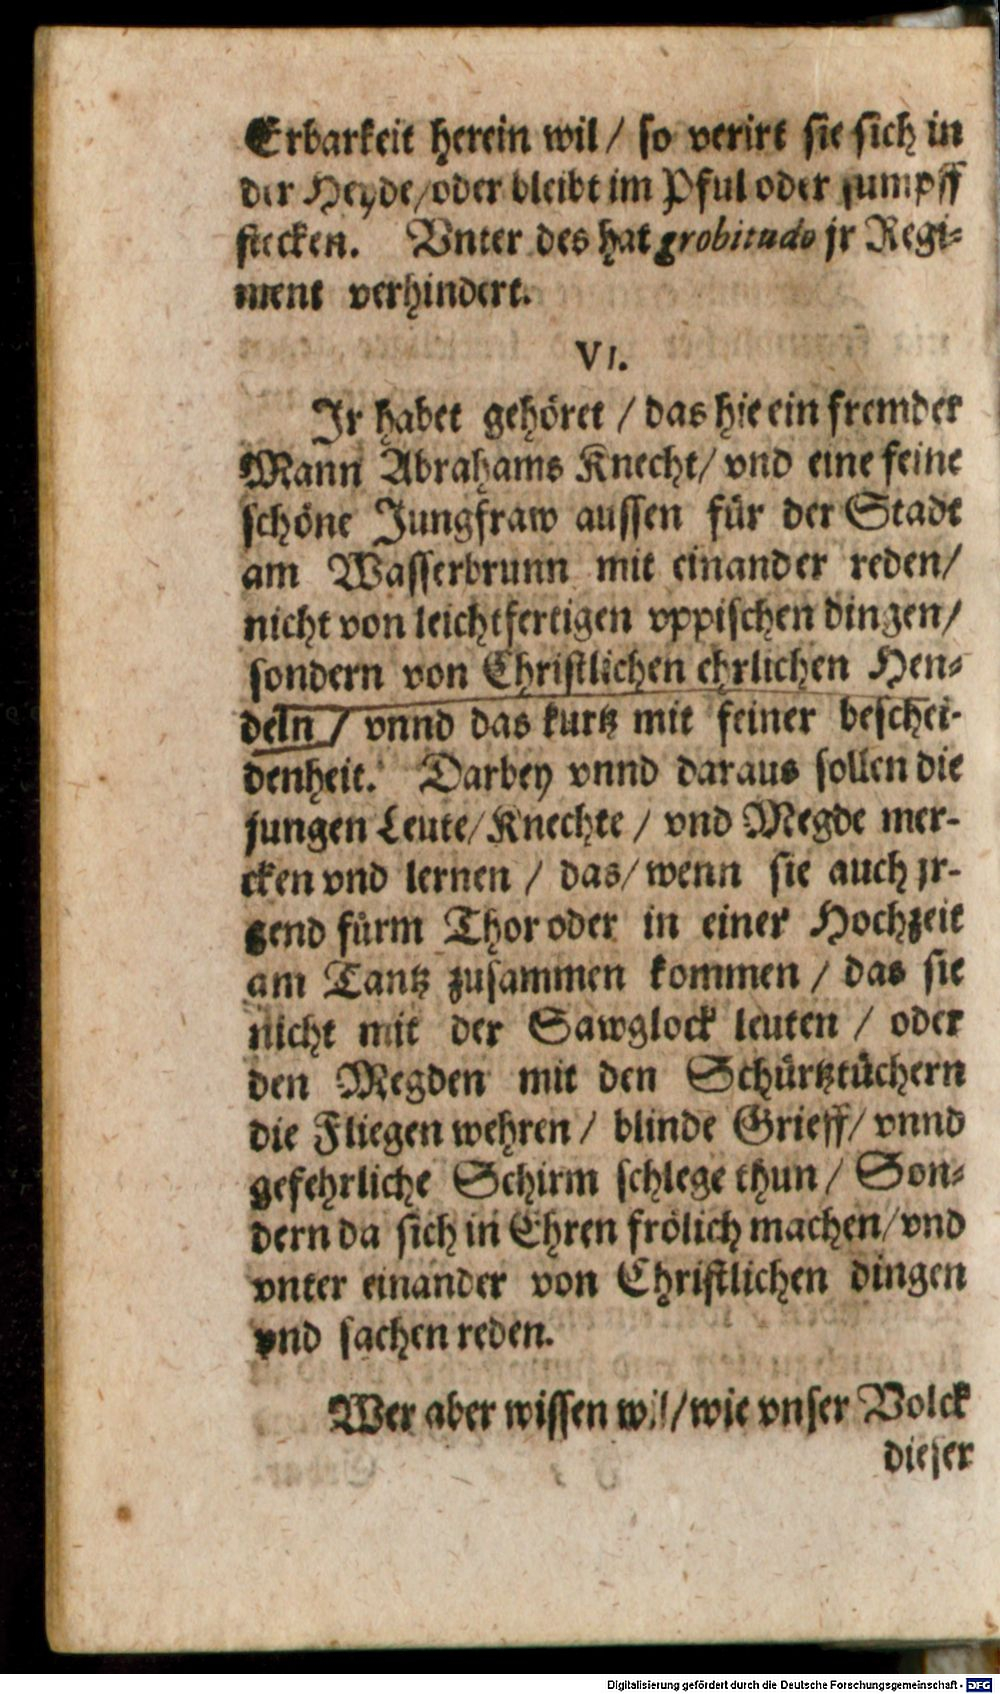 Erbarkeit herein wil / so verirt sie sich in
der Heyde/oder bleibt im Pful oder sumpff
stecken. Vnter des hat grobitudo jr Regi-
ment verhindert.
VI.
Jr habet gehöret / das hie ein fremder
Mann Abrahams Knecht/ vnd eine feine
schöne Jungfraw aussen für der Stadt
am Wasserbrunn mit einander reden/
nicht von leichtfertigen vppischen dingen/
sondern von Christlichen ehrlichen Hen-
deln / vnnd das kurtz mit feiner beschei-
denheit. Darbey vnnd daraus sollen die
jungen Leute/ Knechte / vnd Megde mer-
cken vnd lernen / das/ wenn sie auch jr-
gend fürm Thor oder in einer Hochzeit
am Tantz zusammen kommen / das sie
nicht mit der Sawglock leuten / oder
den Megden mit den Schürtztüchern
die Fliegen wehren / blinde Grieff/ vnnd
gefehrliche Schirm schlege thun / Son-
dern da sich in Ehren frölich machen/ vnd
vnter einander von Christlichen dingen
vnd sachen reden.
Wer aber wissen wil/ wie vnser Volck
dieser
Digitalisierung gefördert durch die Deutsche Forschungsgemeinschaft - DFG